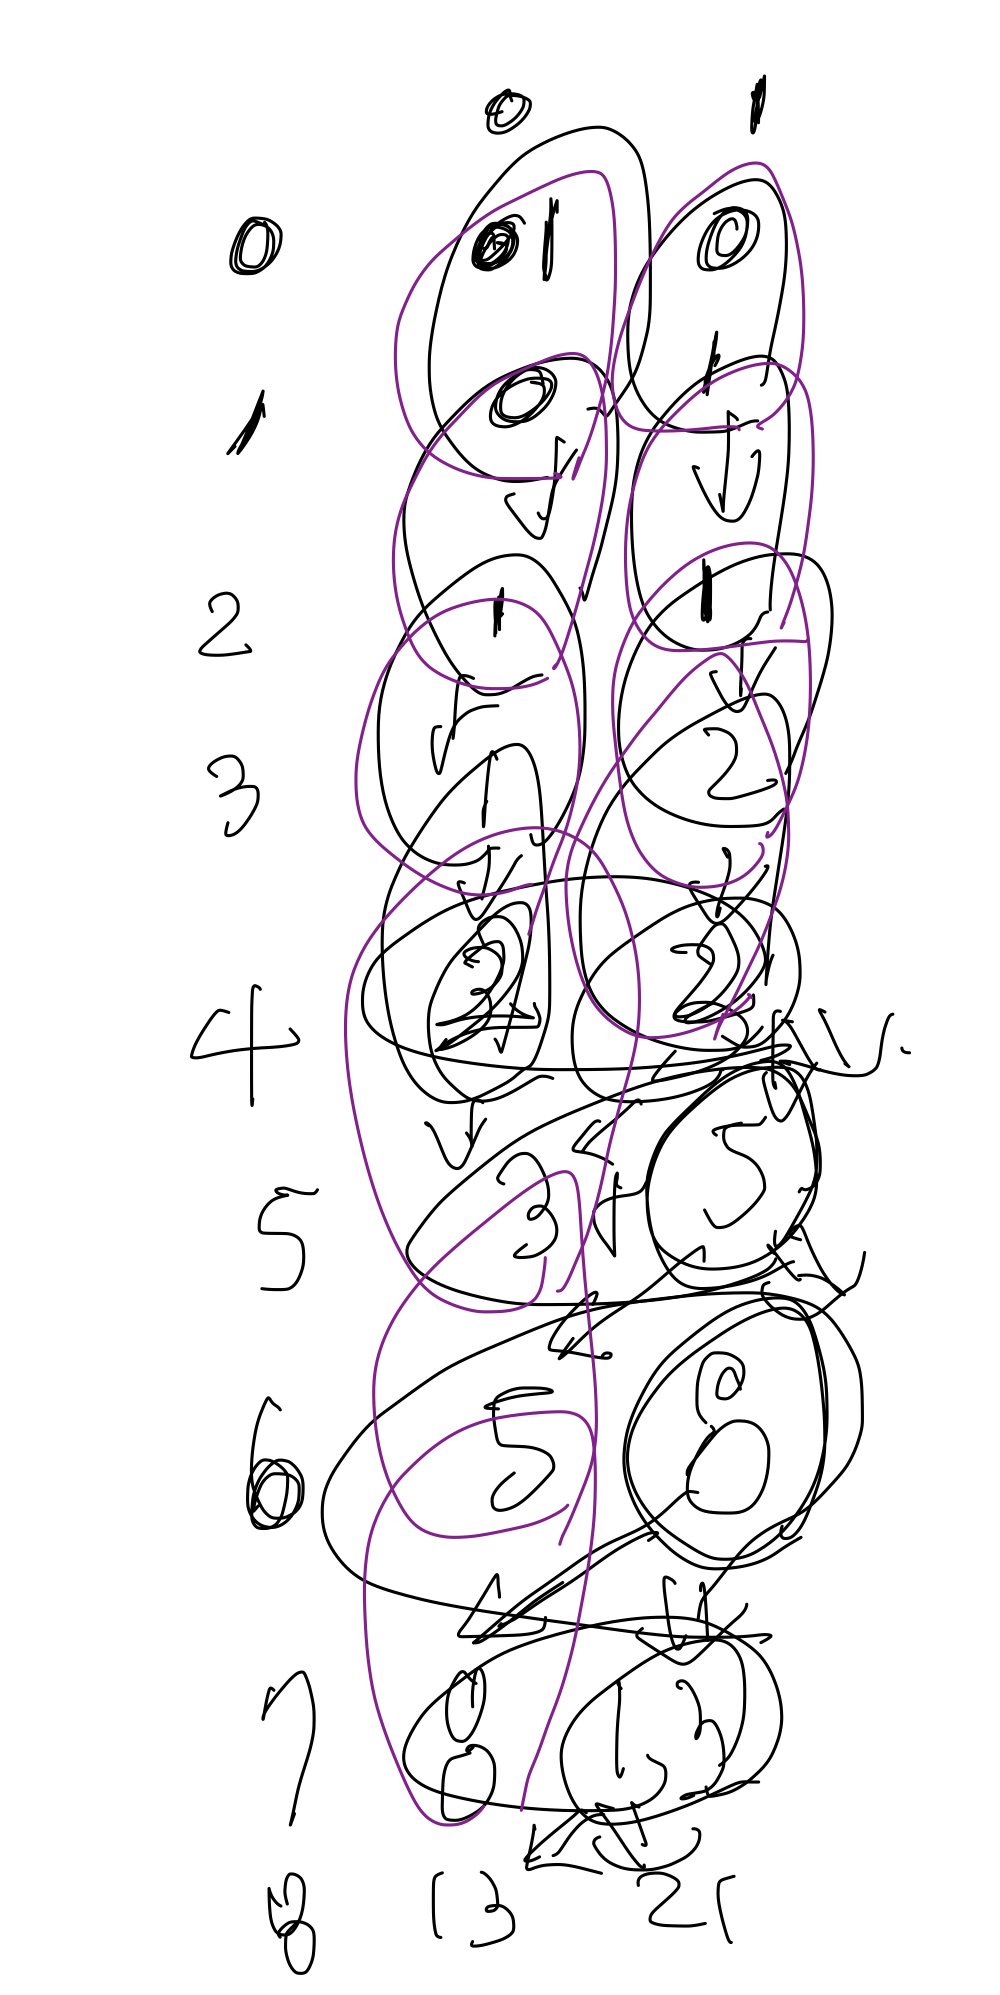 0 1
0 1 0
1 0 1
2 1 1
3 1 2
4 2 3
5 3 5
6 5 8
7 8 13
8 13 21